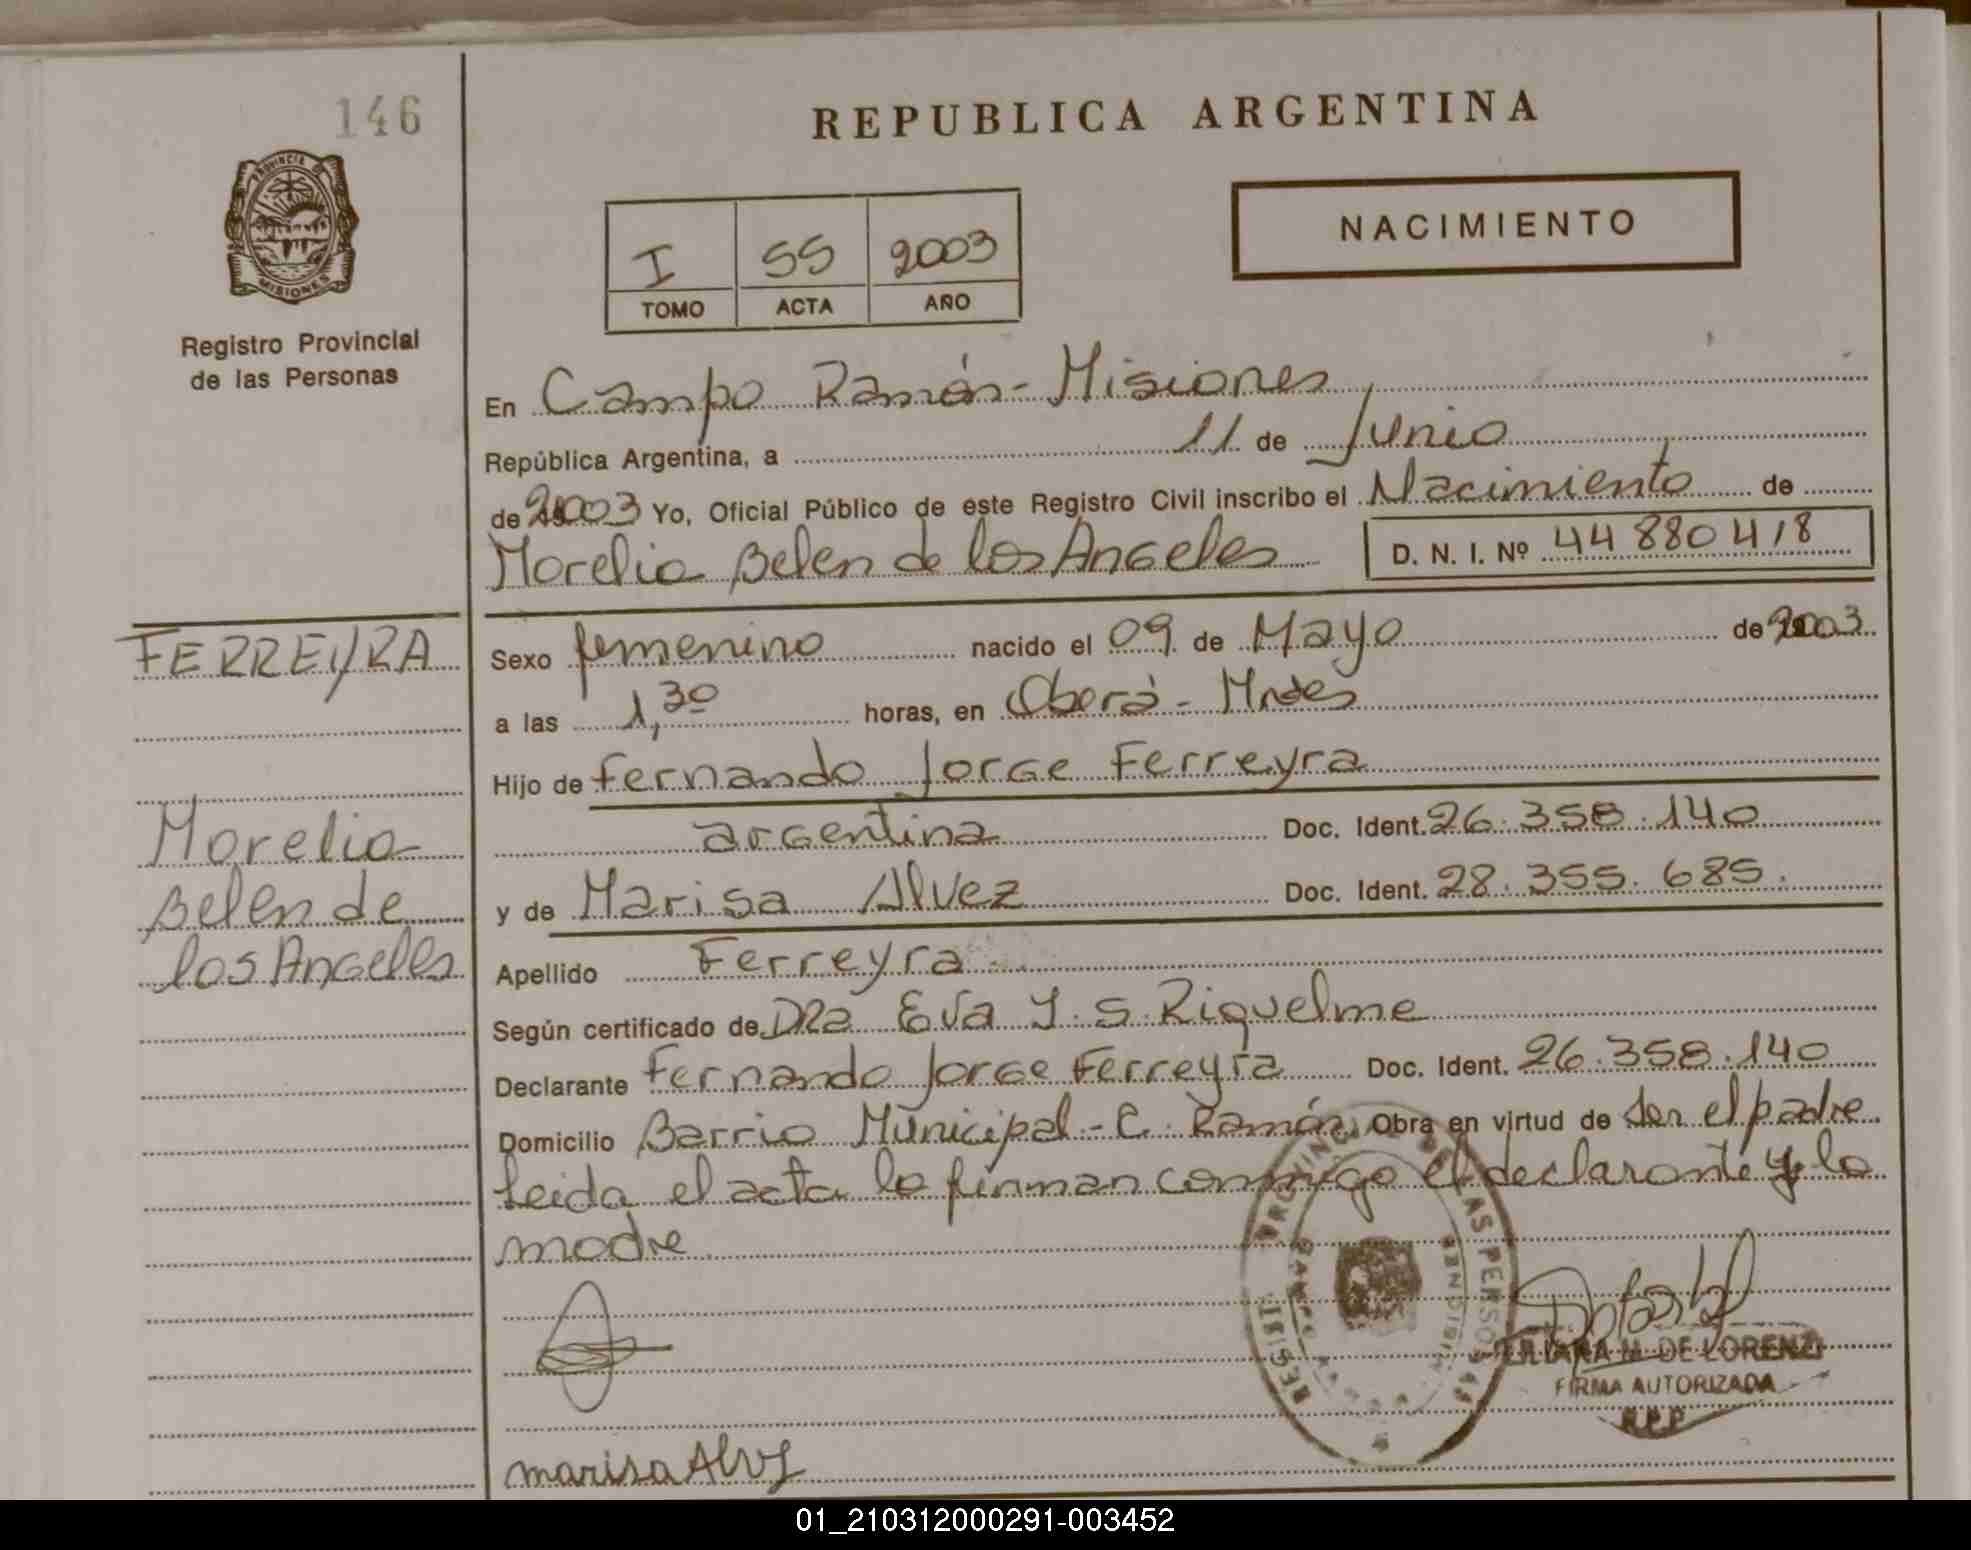 146
REPUBLICA ARGENTINA
PROVINCIA DE
MISIONES
NACIMIENTO
I 55 2003
TOMO ACTA AÑO
Registro Provincial
de las Personas
En Campo Ramón - Misiones
República Argentina, a 11 de Junio
de 2003 Yo, Oficial Público de este Registro Civil inscribo el Nacimiento de
Morelia Belen de los Angeles D. N. I. Nº 44 880 418
FERREYRA
Sexo femenino nacido el 09 de Mayo de 2003
a las 1,30 horas, en Oberá - Mnes
Hijo de Fernando Jorge Ferreyra
argentina Doc. Ident. 26.358.140
Morelia
Belen de
los Angeles
y de Marisa Alvez Doc. Ident. 28.355.685.
Apellido Ferreyra
Según certificado de DRa Eva Y. S. Riquelme
Declarante Fernando Jorge Ferreyra Doc. Ident. 26.358.140
Domicilio Barrio Municipal - C. Ramón Obra en virtud de ser el padre
Leida el acta la firman conmigo el declarante y la
madre
LILIANA N. DE LORENZI
FIRMA AUTORIZADA
R.P.P
marisa Alvz
01_210312000291-003452